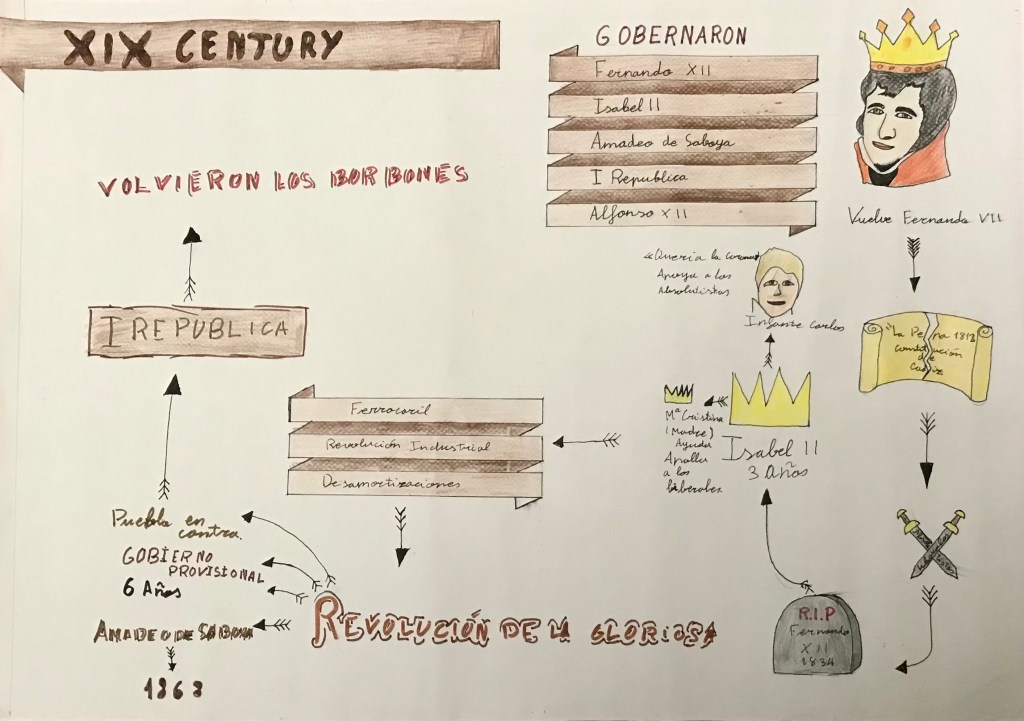 XIX CENTURY
GOBERNARON
Fernando XII
Isabel II
Amadeo de Saboya
I Republica
Alfonso XII
Vuelve Fernando VII
VOLVIERON LOS BORBONES
Quería la
Apoya a los
Absolutistas
Infante Carlos
"La Pepa 1812
constitución
de
Cadiz
I REPUBLICA
Mª Cristina
(Madre)
Ayuda
Apolla
a los
liberales
Isabel II
3 Años
Ferrocaril
Revolución Industrial
Desamortizaciones
Pueblo en
contra.
GOBIERNO
PROVISIONAL
6 Años
AMADEO DE SABOYA
1868
REVOLUCIÓN DE LA GLORIOSA
R.I.P
Fernando
XII
1834